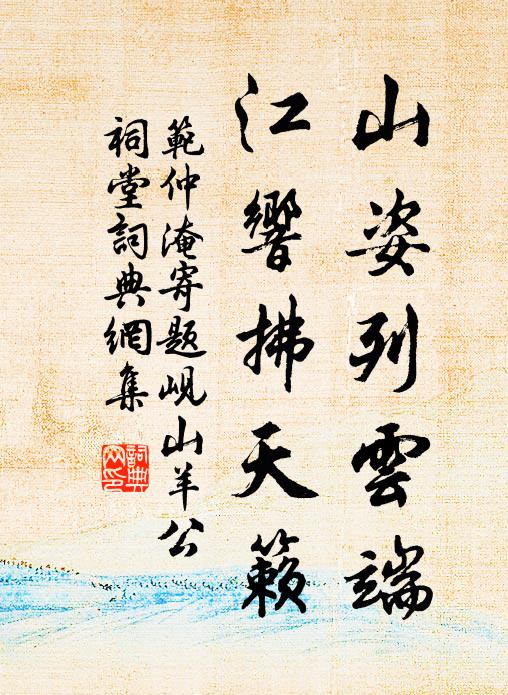 山姿列雲端
江響拂天籟
範仲淹寄題峴山羊公
祠堂詞典網集
詞典
网印